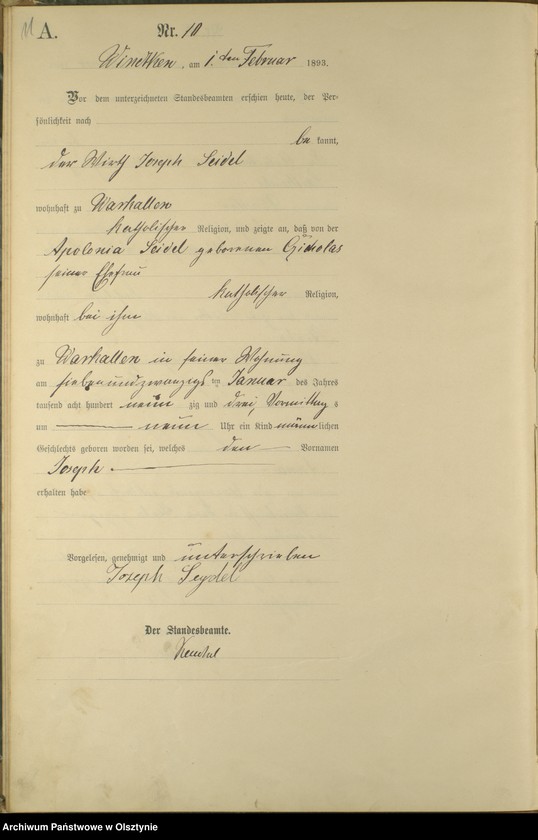 A.
Nr. 10
Windtken, am 1. ten Februar 1893.
Vor dem unterzeichneten Standesbeamten erschien heute, der Per-
sönlichkeit nach
be kannt,
der Wirth Joseph Seidel
wohnhaft zu Warkallen
katholischer Religion, und zeigte an, daß von der
Apolonia Seidel geborenen
seiner Ehefrau
katholischer Religion,
wohnhaft bei ihm
zu Warkallen in seiner Wohnung
am siebenundzwanzigs ten Januar des Jahres
tausend acht hundert neun zig und drei, Vormittag s
um neun Uhr ein Kind männ lichen
Geschlechts geboren worden sei, welches den Vornamen
Joseph
erhalten habe
Vorgelesen, genehmigt und unterschrieben
Joseph Seydel
Der Standesbeamte.
Archiwum Państwowe w Olsztynie